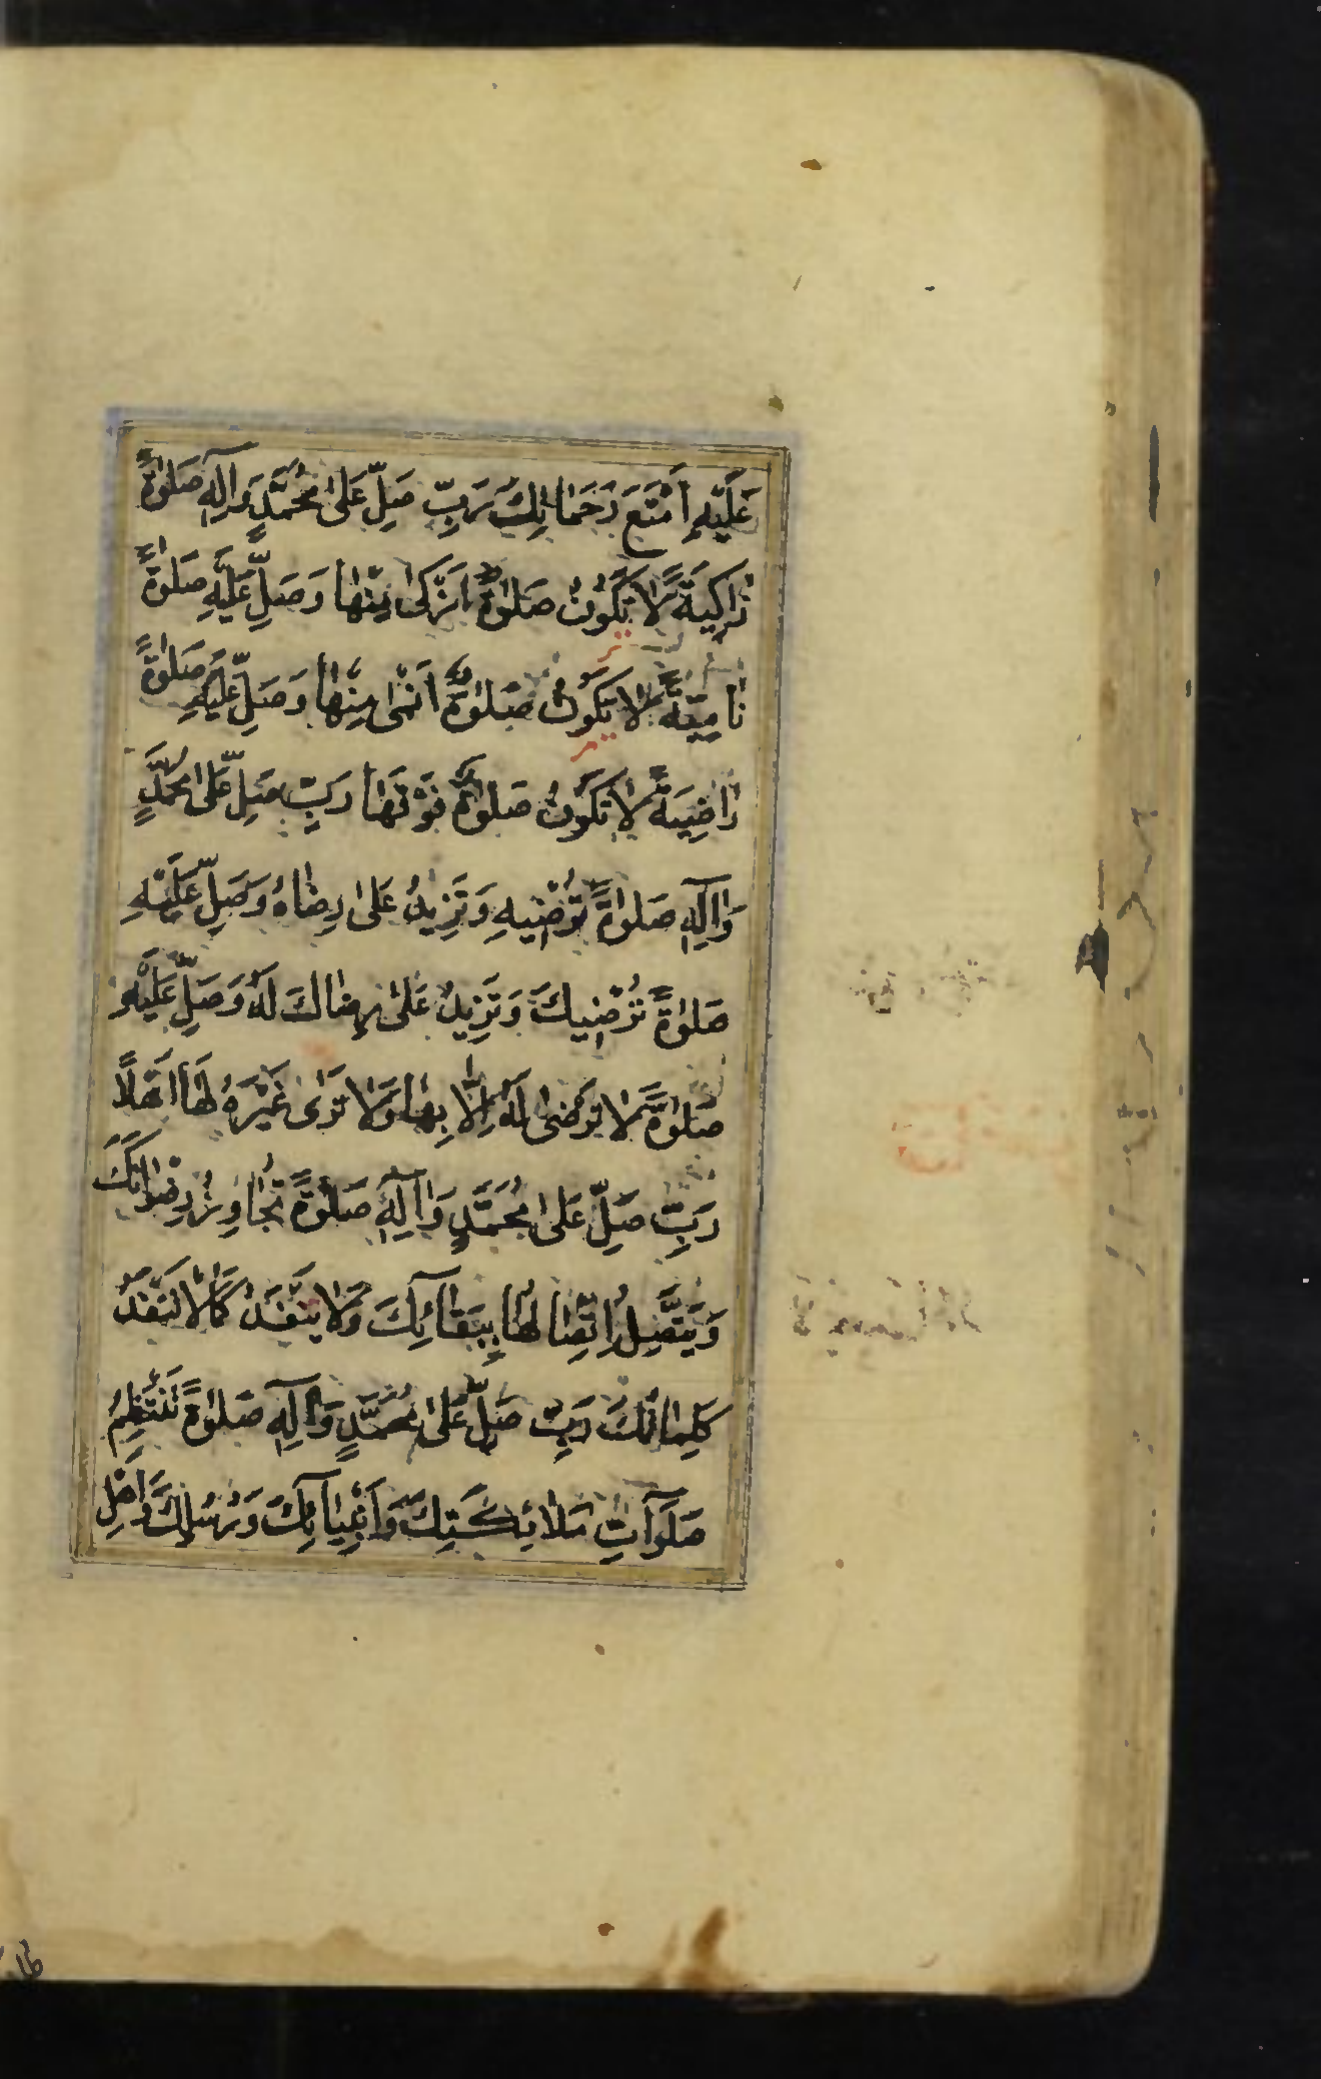 عَلَيْهِ اَمْتَعَ رَحَمَاتِكَ رَبِّ صَلِّ عَلٰى مُحَمَّدٍ وَاٰلِهِ صَلٰوةً
زَاكِيَةً لَا تَكُونُ صَلٰوةٌ اَزْكٰى مِنْهٰا وَصَلِّ عَلَيْهِ صَلٰوةً
نَامِيَةً لَا تَكُونُ صَلٰوةٌ اَنْمٰى مِنْهٰا وَصَلِّ عَلَيْهِ صَلٰوةً
رَاضِيَةً لَا تَكُونُ صَلٰوةٌ فَوْقَهٰا رَبِّ صَلِّ عَلٰى مُحَمَّدٍ
وَاٰلِهِ صَلٰوةً تُرْضِيهِ وَتَزِيدُ عَلٰى رِضَاهُ وَصَلِّ عَلَيْهِ
صَلٰوةً تُرْضِيكَ وَتَزِيدُ عَلٰى رِضَاكَ لَهُ وَصَلِّ عَلَيْهِ
صَلٰوةً لَا تَرْضٰى لَهُ اِلَّا بِهٰا وَلَا تَرٰى غَيْرَهُ لَهٰا اَهْلًا
رَبِّ صَلِّ عَلٰى مُحَمَّدٍ وَاٰلِهِ صَلٰوةً تُجٰاوِزُ رِضْوٰانَكَ
وَيَتَّصِلُ اتِّصٰالُهٰا بِبَقٰائِكَ وَلَا يَنْفَدُ كَمٰا لَا تَنْفَدُ
كَلِمٰاتُكَ رَبِّ صَلِّ عَلٰى مُحَمَّدٍ وَاٰلِهِ صَلٰوةً تَنْتَظِمُ
صَلَوَاتِ مَلٰائِكَتِكَ وَاَنْبِيٰائِكَ وَرُسُلِكَ وَاَهْلِ